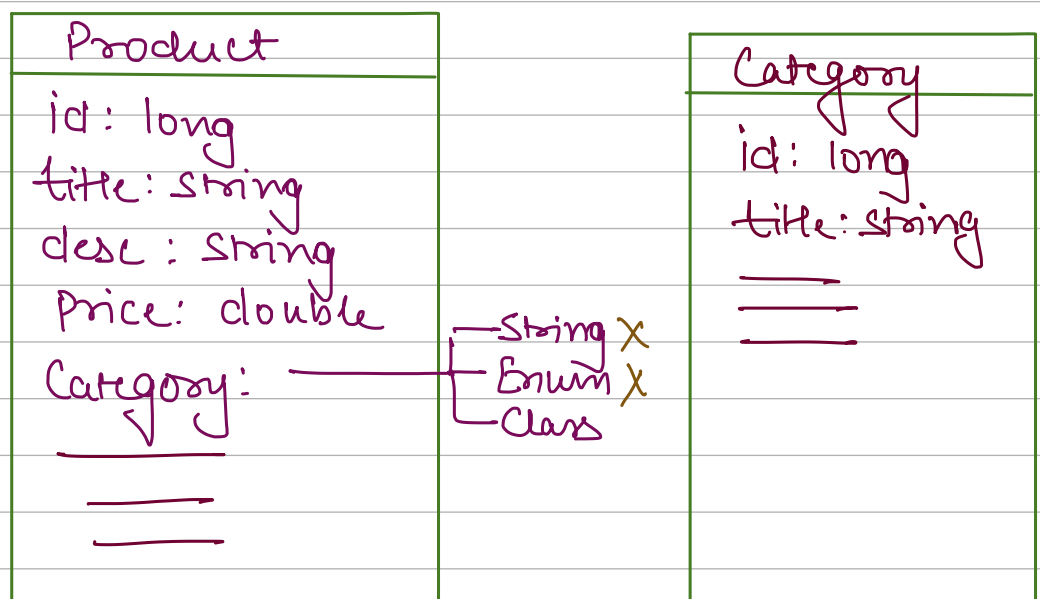 Product
id: long
title: string
desc: string
Price: double
Category:
String X
Enum X
Class
Category
id: long
title: string